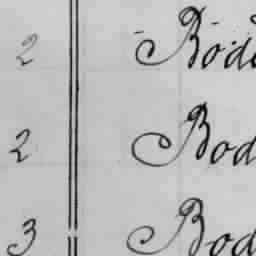 2 Bod
2 Bod
3 Bod